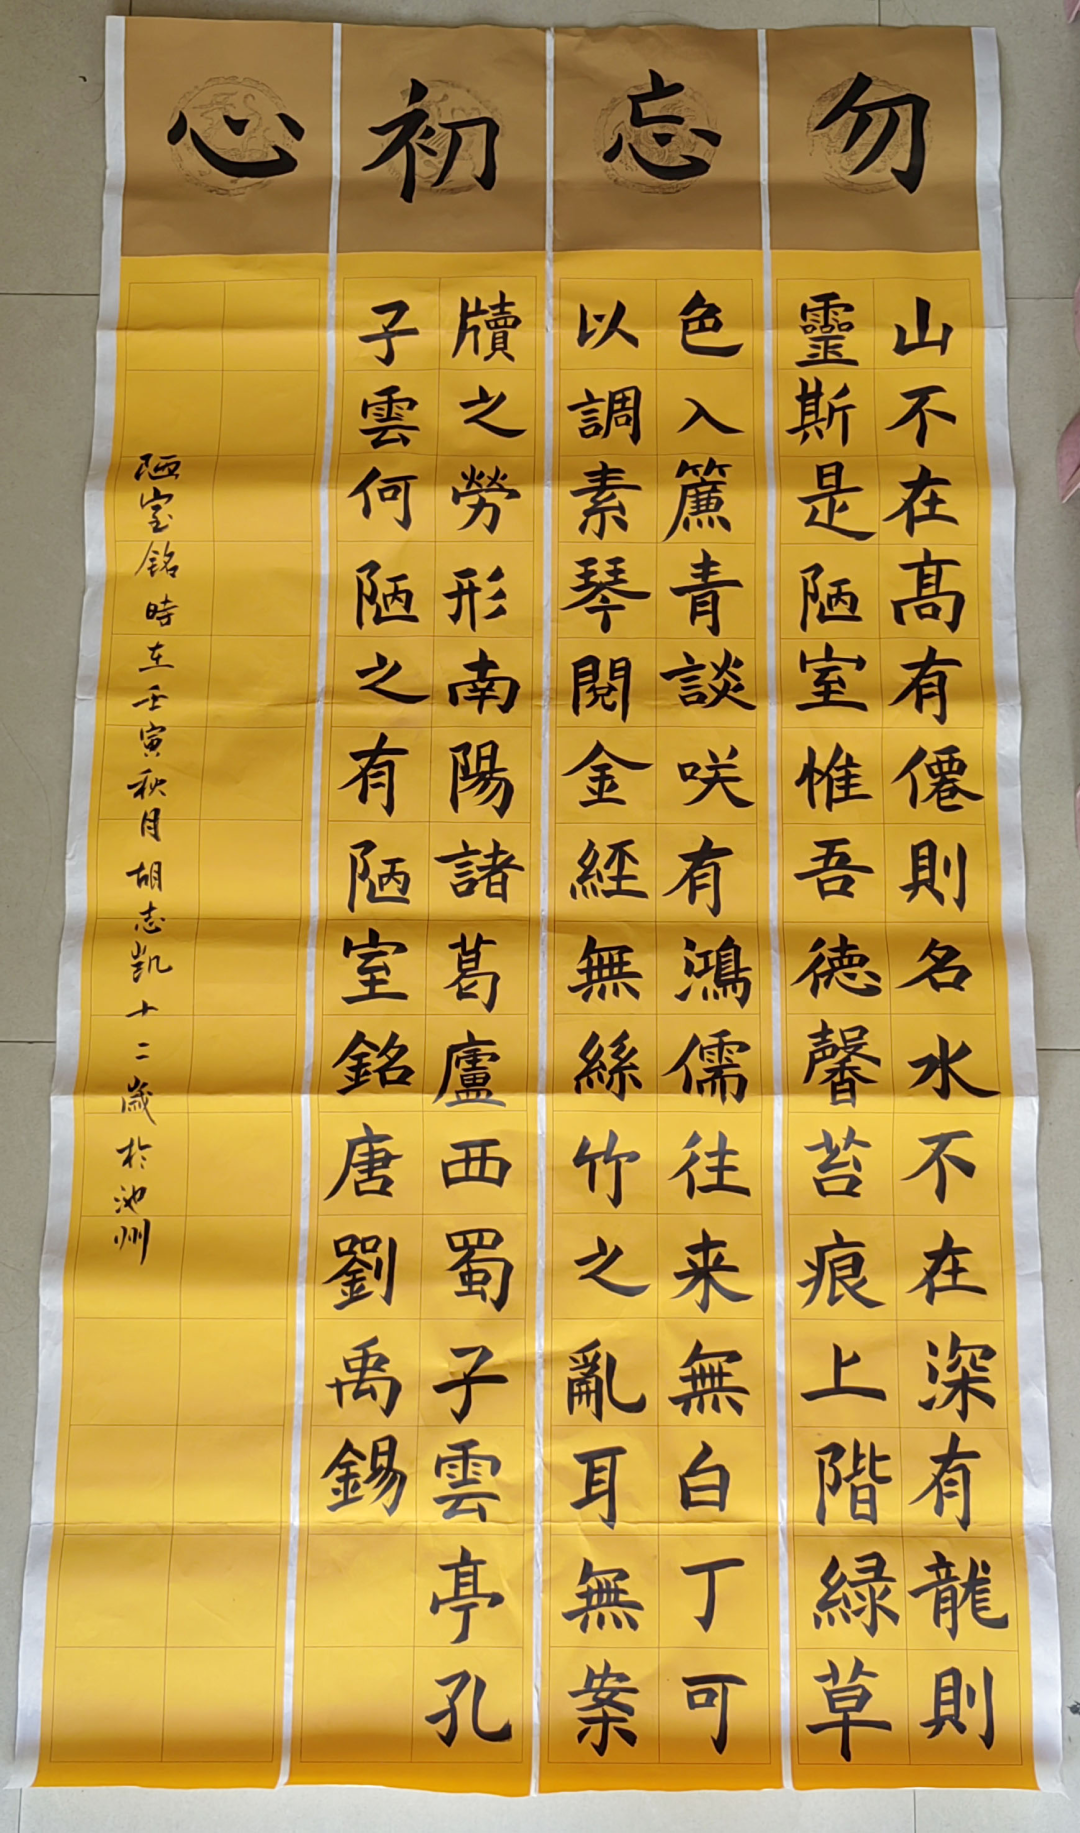 勿忘初心
山不在高有僊則名水不在深有龍則
靈斯是陋室惟吾德馨苔痕上階緑草
色入簾青談咲有鴻儒往来無白丁可
以調素琴閱金經無絲竹之亂耳無案
牘之勞形南陽諸葛廬西蜀子雲亭孔
子雲何陋之有陋室銘唐劉禹錫
陋室銘時在壬寅秋月胡志凱十二歲於池州